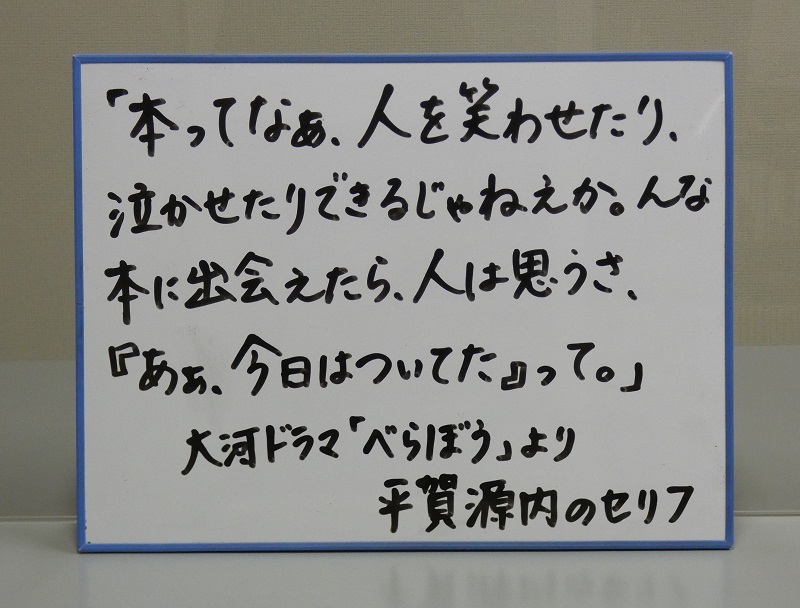 「本ってなぁ、人を笑わせたり、
泣かせたりできるじゃねえか。んな
本に出会えたら、人は思うさ、
『あぁ、今日はついてた』って。」
大河ドラマ「べらぼう」より
平賀源内のセリフ